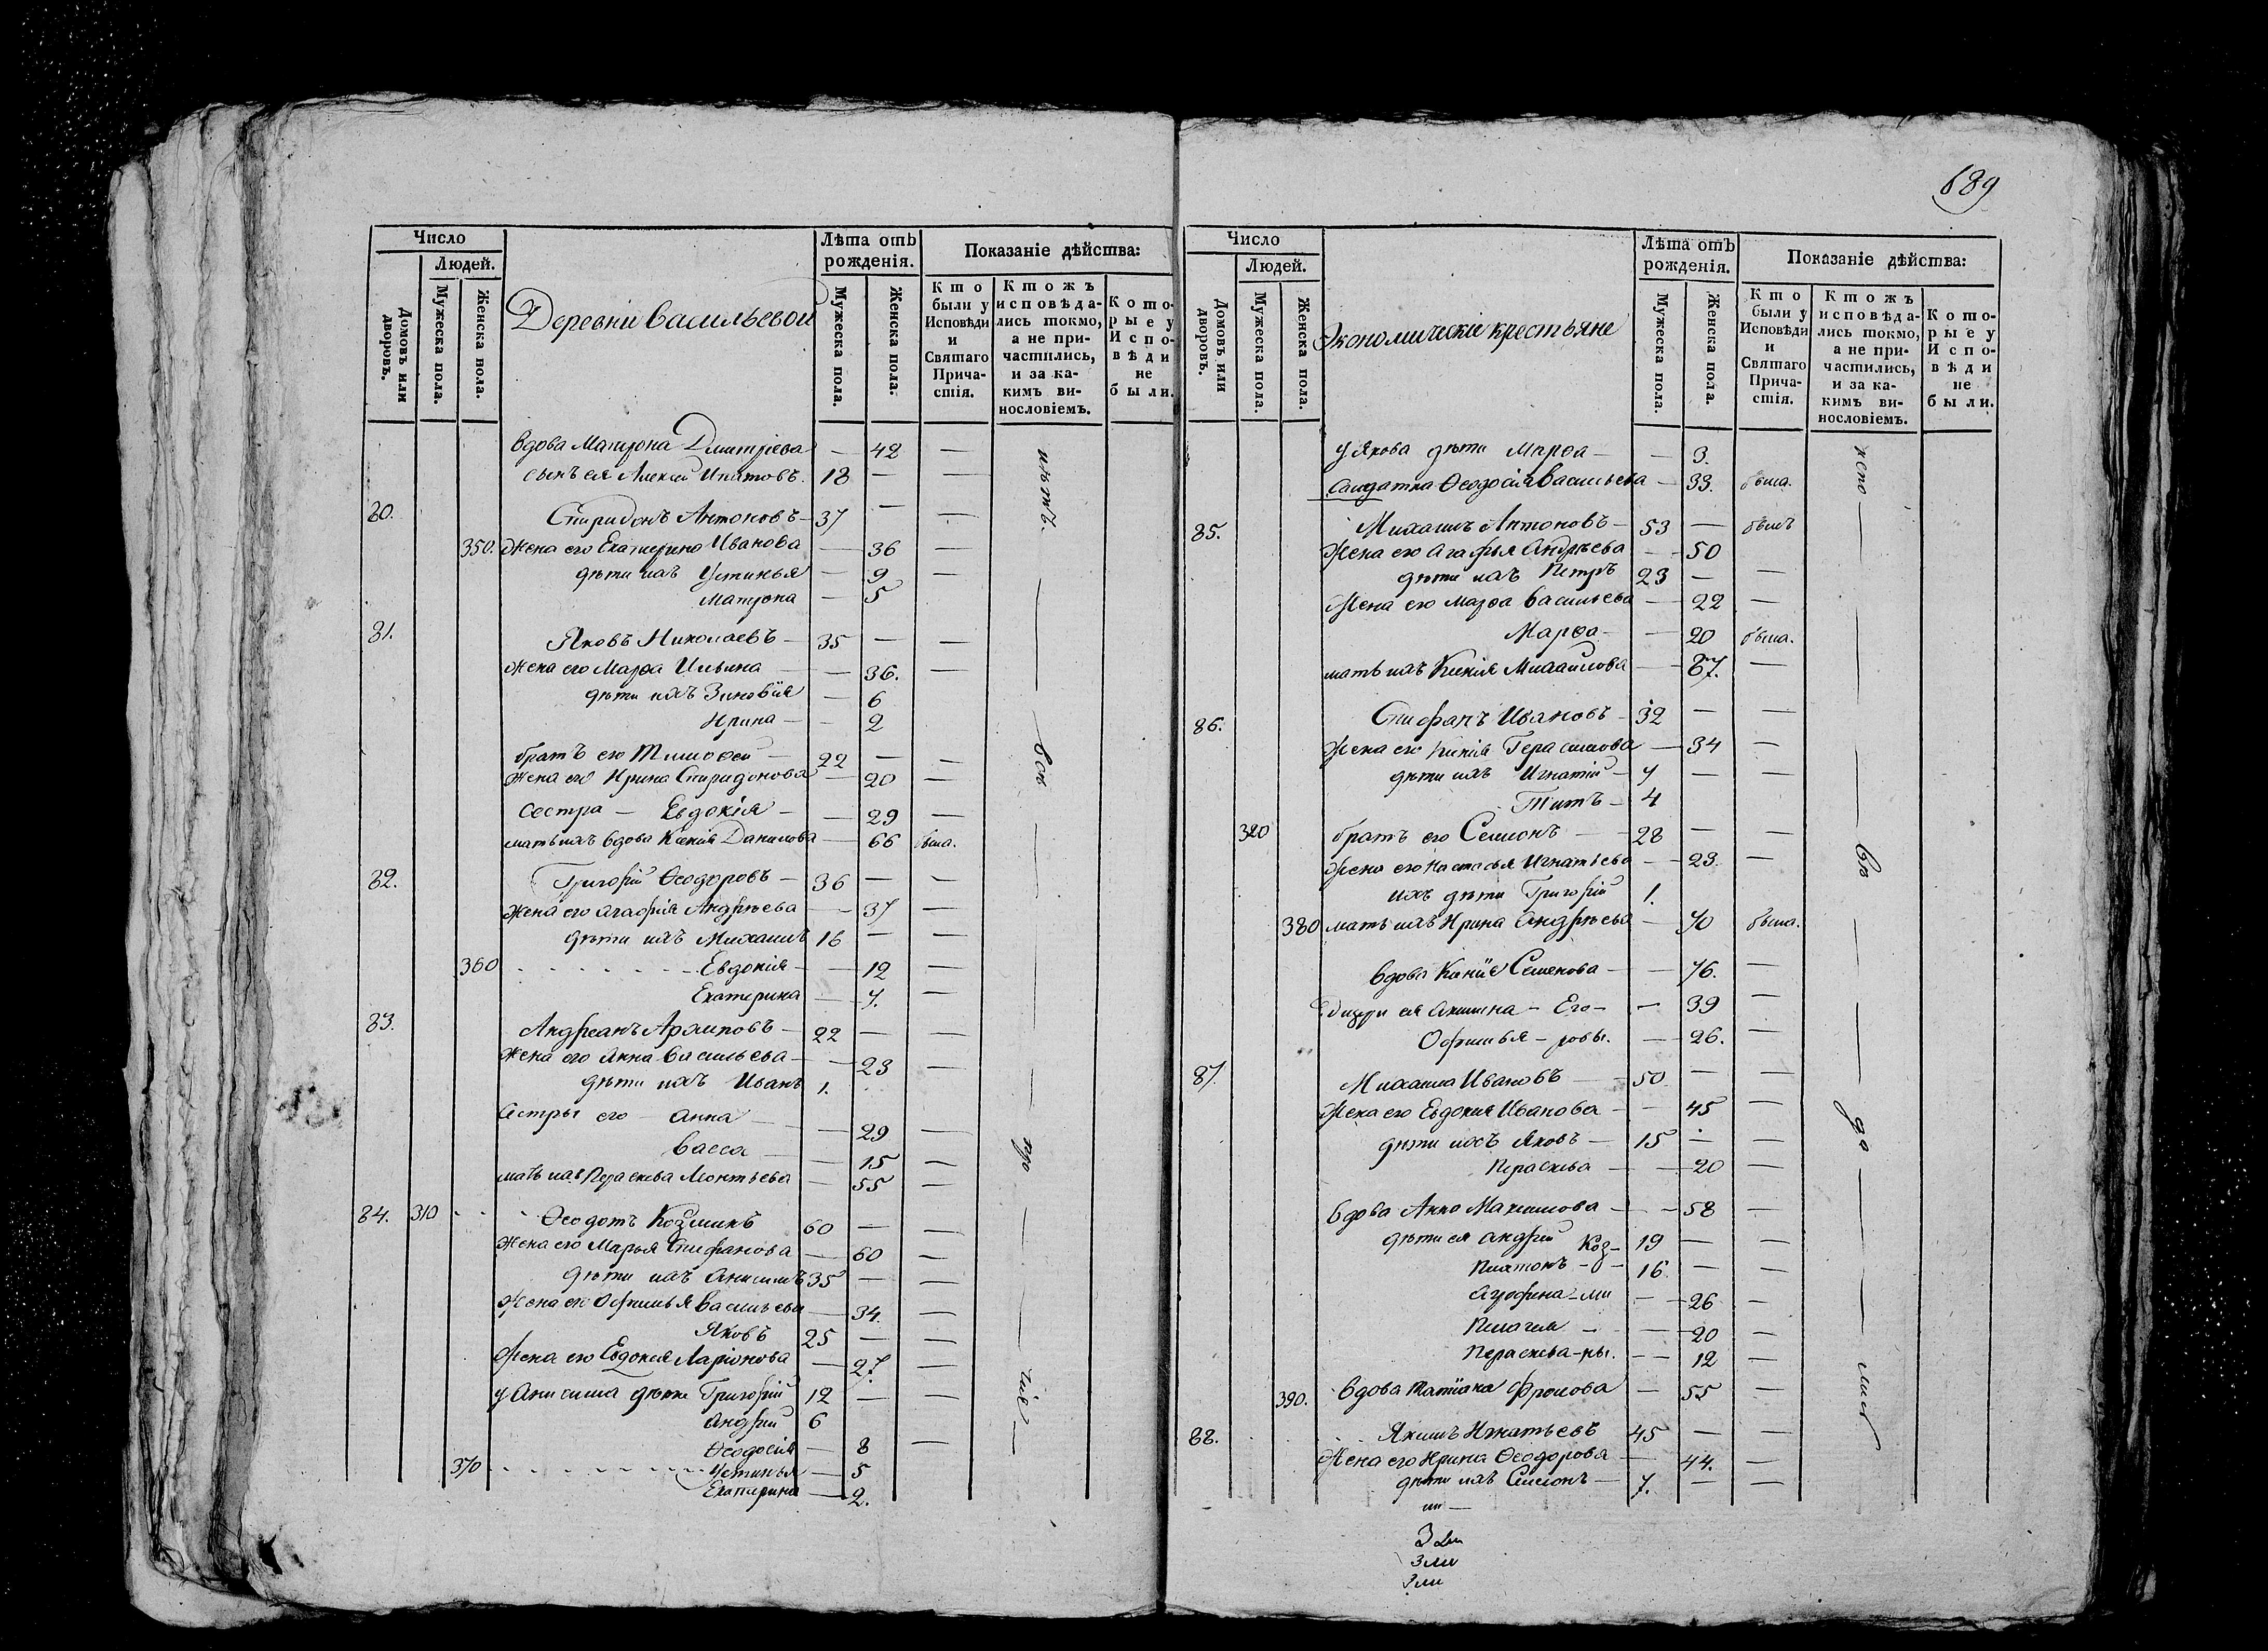 689
Число
Людей.
Домовъ или дворовъ.
Мужеска пола.
Женска пола.
Деревни Васильевой
Лѣта отъ рожденія.
Мужеска пола.
Женска пола.
Показаніе дѣйства:
Кто были у Исповѣди и Святаго Причастія.
Ктожъ исповѣдались токмо, а не причастились, и за какимъ винословіемъ.
Которые у Исповѣди не были.
вдова Матрона Дмитріева — 42 —
сынъ ея Алексей Ипатовъ. 18 — —
80. Спиридонъ Антоновъ — 37 — —
350. Жена его Екатерина Иванова — 36 —
дѣти ихъ Устинья — 9 —
Матрона — 5
81. Яковъ Николаевъ — 35 — —
Жена его Марѳа Ильина — 36. —
дѣти ихъ Зиновія — 6
Ирина — 2
братъ его Тимоѳей — 22 — —
Жена его Ирина Спиридонова — 20 —
сестра — Евдокія — 29 —
мать ихъ вдова Ксенія Данилова — 66 была.
82. Григорій Ѳеодоровъ — 36 — —
Жена его Агафія Андрѣева — 37 —
дѣти ихъ Михаилъ 16 — —
360 Евдокія — 12 —
Екатерина — 7. —
83. Андреанъ Архиповъ — 22 — —
Жена его Анна Васильева — 23 —
дѣти ихъ Иванъ 1.
Сестры его — Анна — 29 —
Васса — 15 —
мать ихъ Параскева Леонтьева — 55 —
84. 310 Ѳеодотъ Козминъ 60 — —
Жена его Марья Стефанова — 60 —
дѣти ихъ Анисимъ 35 — —
Жена его Офимья Васильева — 34. —
Яковъ 25 — —
Жена его Евдокия Ларіонова — 27. —
у Анисима дѣти Григорій 12 — —
Андрей 6
Ѳеодосія — 8 —
370 Устинья — 5
Екатерина — 2.
Число
Людей.
Домовъ или дворовъ.
Мужеска пола.
Женска пола.
Экономическіе крестьяне
Лѣта отъ рожденія.
Мужеска пола.
Женска пола.
Показаніе дѣйства:
Кто были у Исповѣди и Святаго Причастія.
Ктожъ исповѣдались токмо, а не причастились, и за какимъ винословіемъ.
Которые у Исповѣди не были.
у Якова дѣти Марѳа — — 3.
Салдатка Ѳеодосія Васильева — 33. была.
85. Михаилъ Антоновъ — 53 — былъ
Жена его Агафья Андрѣева — 50
дѣти ихъ Петръ 23 — —
Жена его Марѳа Васильева — 22 —
Марѳа — — 20 была.
мать ихъ Ксенія Михайлова — 87. —
86. Стефанъ Ивановъ — 32 — —
Жена его Ксенія Герасимова — 34 —
дѣти ихъ Игнатій — 7 — —
Титъ — 4
320 братъ его Семионъ — 28 — —
Жена его Настасья Игнатьева — 23. —
ихъ дѣти Григорій 1.
380 мать ихъ Ирина Андрѣева — 70 была.
вдова Ксенія Семенова — 76. —
дщери ея Акилина — Его — — 39 —
Офимья — ровы. — 26. —
87. Михаила Ивановъ — 50 — —
Жена его Евдокия Иванова — 45 —
дѣти ихъ Яковъ — 15 — —
Параскева — 20 —
вдова Анна Максимова — 58 —
дѣти ея Андрей Коз- 19 — —
Платонъ — 16. — —
Агрофина — ми — 26 —
Пелагея — 20 —
Параскева — ны. — 12 —
390. вдова Татіана Фролова — 55 —
88. Якимъ Игнатьевъ 45 — —
Жена его Ирина Ѳеодорова — 44. —
дѣти ихъ Симионъ — 7. — —